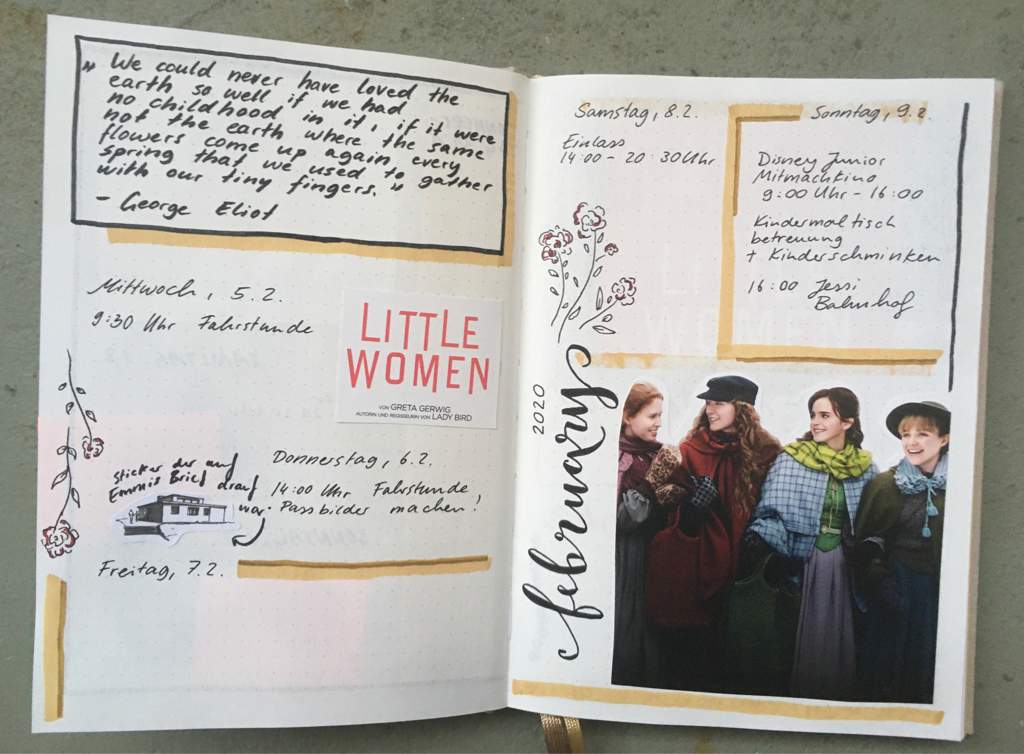 „ We could never have loved the
earth so well if we had
no childhood in it, if it were
not the earth where the same
flowers come up again every
spring that we used to gather
with our tiny fingers. “
- George Eliot
Mittwoch, 5.2.
9:30 Uhr Fahrstunde
LITTLE
WOMEN
VON GRETA GERWIG
AUTORIN UND REGISSEURIN VON LADY BIRD
Sticker der auf
Emmis Brief drauf
war.
Donnerstag, 6.2.
14:00 Uhr Fahrstunde,
Passbilder machen!
Freitag, 7.2.
Samstag, 8.2.
Einlass
14:00 - 20:30 Uhr
Sonntag, 9.2.
Disney Junior
Mitmachkino
9:00 Uhr - 16:00
Kindermaltisch
betreuung
+ Kinderschminken
16:00 Jessi
Bahnhof
2020
february